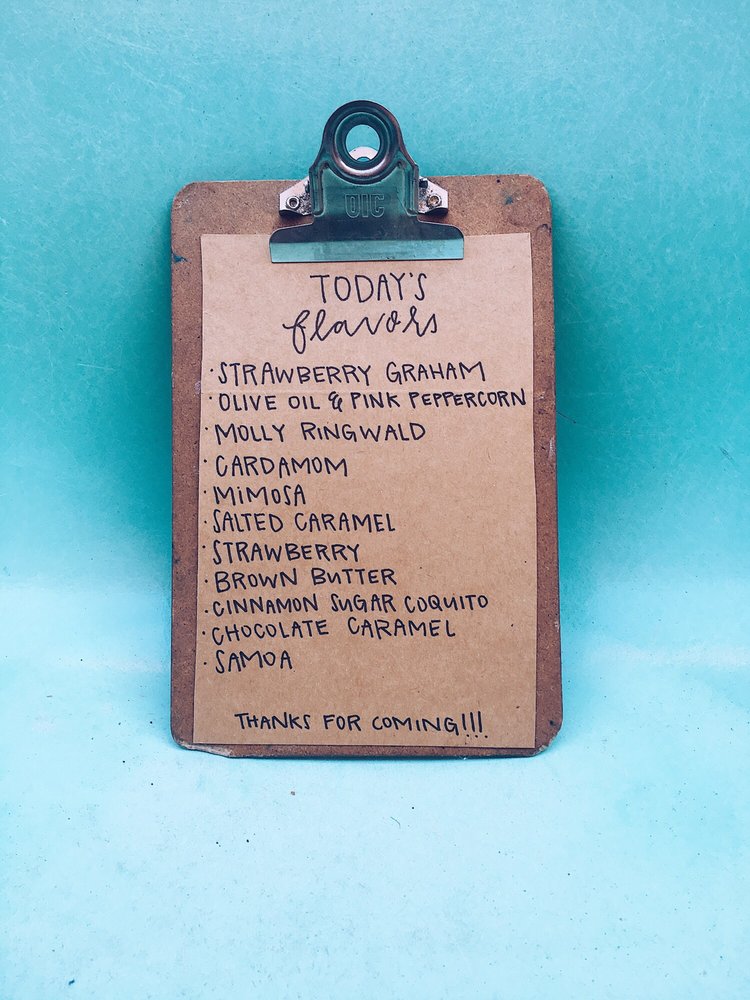 OIC
TODAY'S
flavors
· STRAWBERRY GRAHAM
· OLIVE OIL & PINK PEPPERCORN
· MOLLY RINGWALD
· CARDAMOM
· MiMOSA
· SALTED CARAMEL
· STRAWBERRY
· BROWN BUTTER
· CINNAMON SUGAR COQUITO
· CHOCOLATE CARAMEL
· SAMOA
THANKS FOR COMING!!!